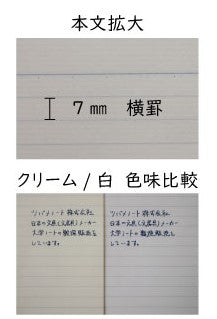 本文拡大
7㎜ 横罫
クリーム / 白 色味比較
ツバメノート 株式会社
日本の文具(文房具)メーカー
大学ノートの製造販売を
しています。
ツバメノート 株式会社
日本の文具(文房具)メーカー
大学ノートの製造販売を
しています。